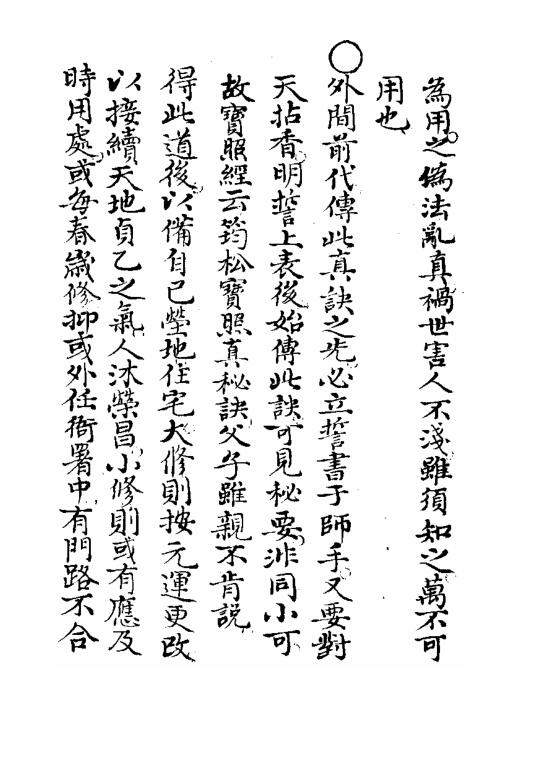 為用之偽法亂真禍世害人不淺雖須知之萬不可
用也
○外間前代傳此真訣之先必立誓書于師手又要對
天拈香明誓上表後始傳此訣可見秘要非同小可
故寶照經云筠松寶照真秘訣父子雖親不肯説
得此道後以備自已塋地住宅大修則按元運更改
以接續天地貞乙之氣人沐榮昌小修則或有應及
時用處或每春歲修抑或外任衙署中有門路不合